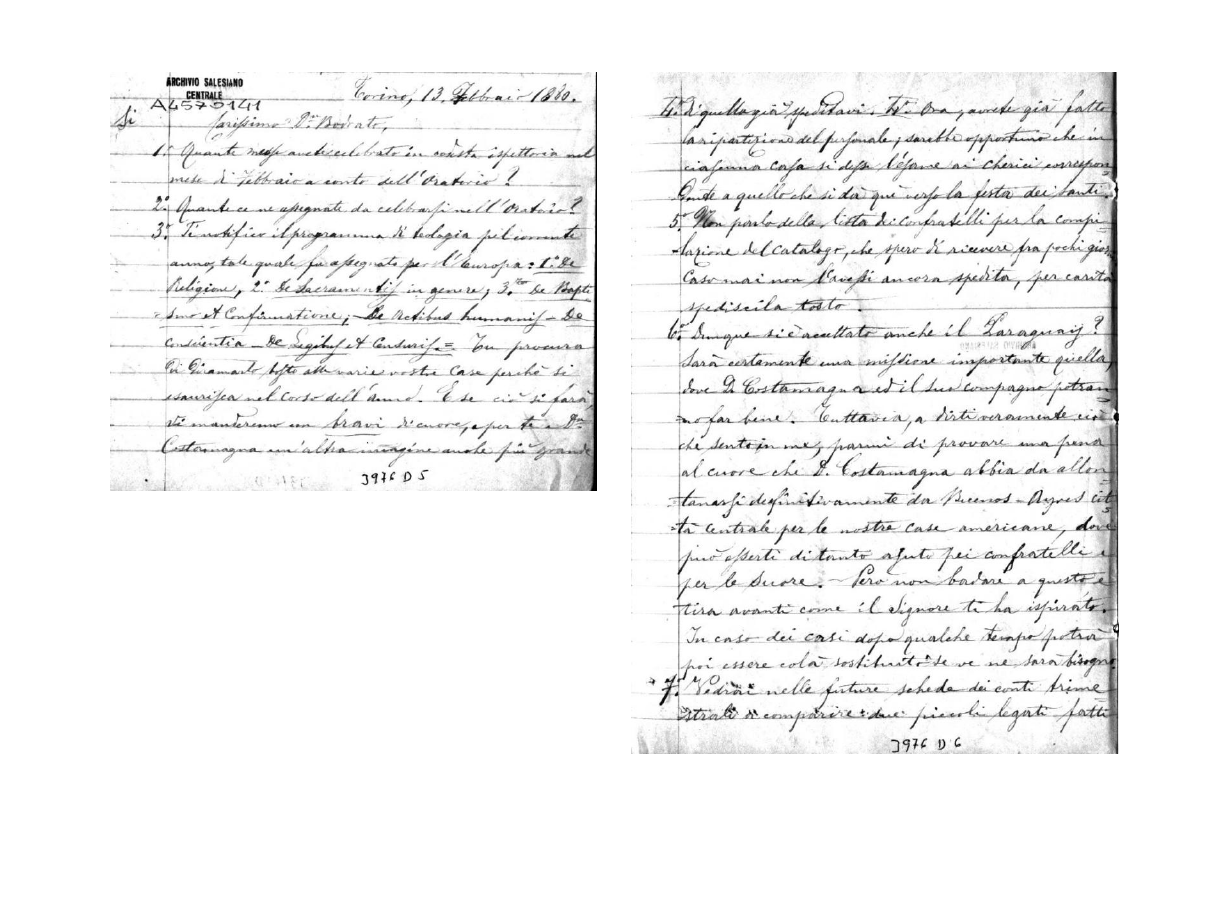 ARCHIVIO SALESIANO
CENTRALE
A4579141
Torino, 13 Febbraio 1880.
Si
Carissimo D. Bodrato,
1.° Quante messe avete celebrato in codesta ispettoria nel
mese di Febbraio a conto dell'Oratorio?
2.° Quante ce ne assegnate da celebrarsi nell'Oratorio?
3.° Ti notifico il programma di teologia pel corrente
anno, tale quale fu assegnato per l'Europa: 1.° De
Religione, 2.° De Sacramentis in genere; 3.° De Bapti
smo et Confirmatione; De Actibus humanis - De
conscientia - De Legibus et Censuris. = Tu procura
di diramarlo tosto alle varie vostre Case perchè si
esaurisca nel corso dell'anno. E se ciò si farà
vi manderemo un bravi di cuore, e per te e D.
Costamagna un'altra imagine anche più grande
3976 D 5
di quella già speditavi. 4.° Ora, avrete già fatto
la ripartizione del personale; sarebbe opportuno che in
ciascuna casa si desse l'esame ai cherici corrispon
dente a quello che si dà qui verso la festa dei Santi.
5.° Non parlo della lista di confratelli per la compi
-lazione del Catalogo, che spero di ricevere fra pochi gior
Caso mai non l'avessi ancora spedita, per carità
spediscila tosto.
6.° Dunque si è accettato anche il Paraguaij?
Sarà certamente una missione importante quella,
dove D. Costamagna ed il suo compagno potran
=no far bene. Tuttavia, a dirti veramente ciò
che sento in me, parmi di provare una pena
al cuore che D. Costamagna abbia da allon
=tanarsi definitivamente da Buenos-Ayres cit
=tà centrale per le nostre case americane, dove
può esserti di tanto ajuto pei confratelli e
per le Suore. - Però non badare a questo e
tira avanti come il Signore ti ha ispirato.
In caso dei casi dopo qualche tempo potrà
poi essere colà sostituito se ve ne sarà bisogno.
7.° Vedrai nelle future schede dei conti trime
strali a comparire due piccoli legati fatti
3976 D 6